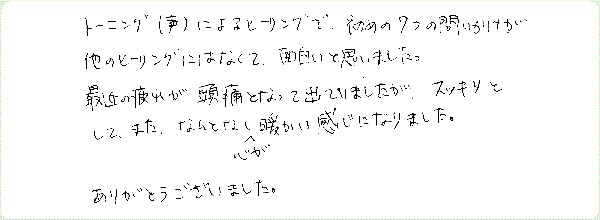 トーニング(声)によるヒーリングで、初めの7つの問いかけが
他のヒーリングにはなくて、面白いと思いました。
最近の疲れが頭痛となって出ていましたが、スッキリと
して、また、なんとなし心が暖かい感じになりました。
ありがとうございました。